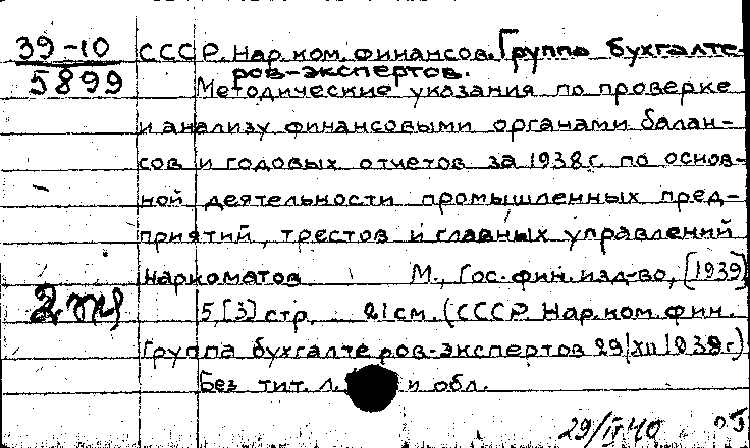 39-10 СССР. Нар. ком. финансов. Группа бухгалте-
5899 ров-экспертов.
Методические указания по проверке
и анализу финансовыми органами балан-
сов и годовых отчетов за 1938 г. по основ-
ной деятельности промышленных пред-
приятий, трестов и главных управлений
наркоматов М., Гос. фин. изд-во, [1939]
5, [3] стр. 21 см. (СССР. Нар. ком. фин.
Группа бухгалтеров-экспертов 29/XII 1938 г.)
Без тит. л. и обл.
29/IV 40